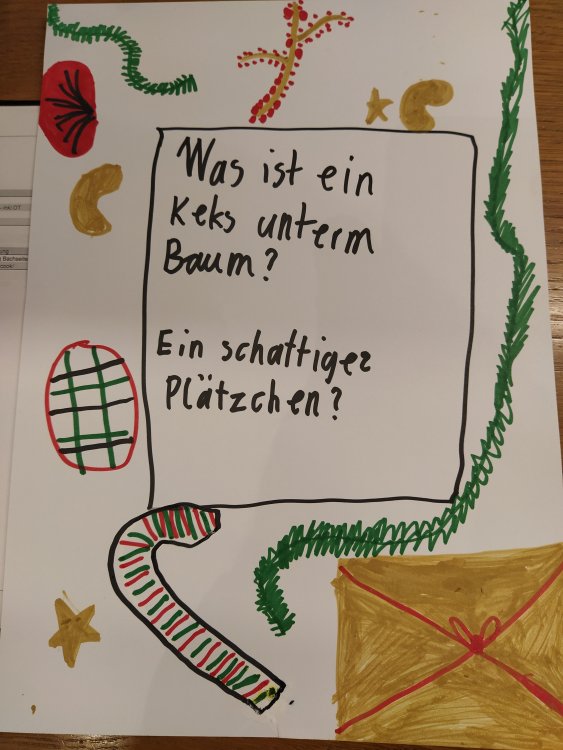 Was ist ein
Keks unterm
Baum?
Ein schattiges
Plätzchen?